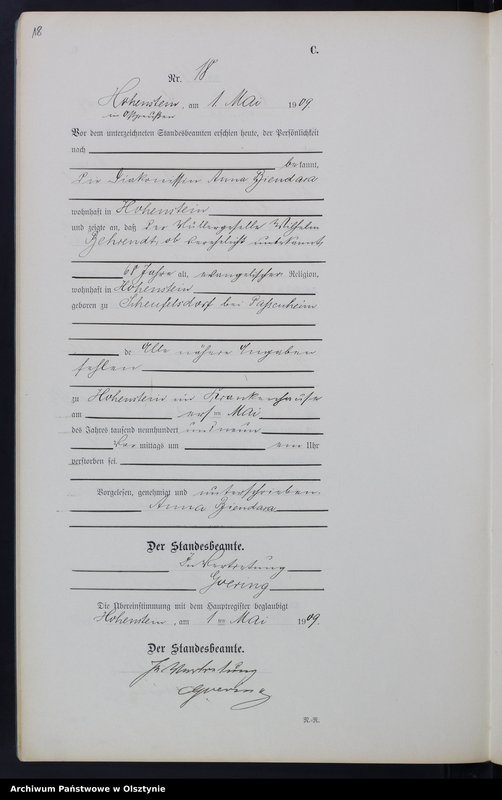 18
C.
Nr. 18
Hohenstein, am 1. Mai 1909
in Ostpreußen
Vor dem unterzeichneten Standesbeamten erschien heute, der Persönlichkeit
nach
bekannt,
die Diakonissin Anna
wohnhaft in Hohenstein
und zeigte an, daß der Müllergeselle Wilhelm
Behrendt, ob verehelicht unbekannt,
60 Jahre alt, evangelischer Religion,
wohnhaft in Hohenstein
geboren zu Scheufelsdorf bei Passenheim
de Alle nähere Angaben
fehlen
zu Hohenstein im Krankenhause
am ersten Mai
des Jahres tausend neunhundert und neun
Vor mittags um ein Uhr
verstorben sei.
Vorgelesen, genehmigt und unterschrieben
Anna
Der Standesbeamte.
In Vertretung
Goering
Die Übereinstimmung mit dem Hauptregister beglaubigt
Hohenstein, am 1ten Mai 1909.
Der Standesbeamte.
In Vertretung
Goering
N.-R.
Archiwum Państwowe w Olsztynie